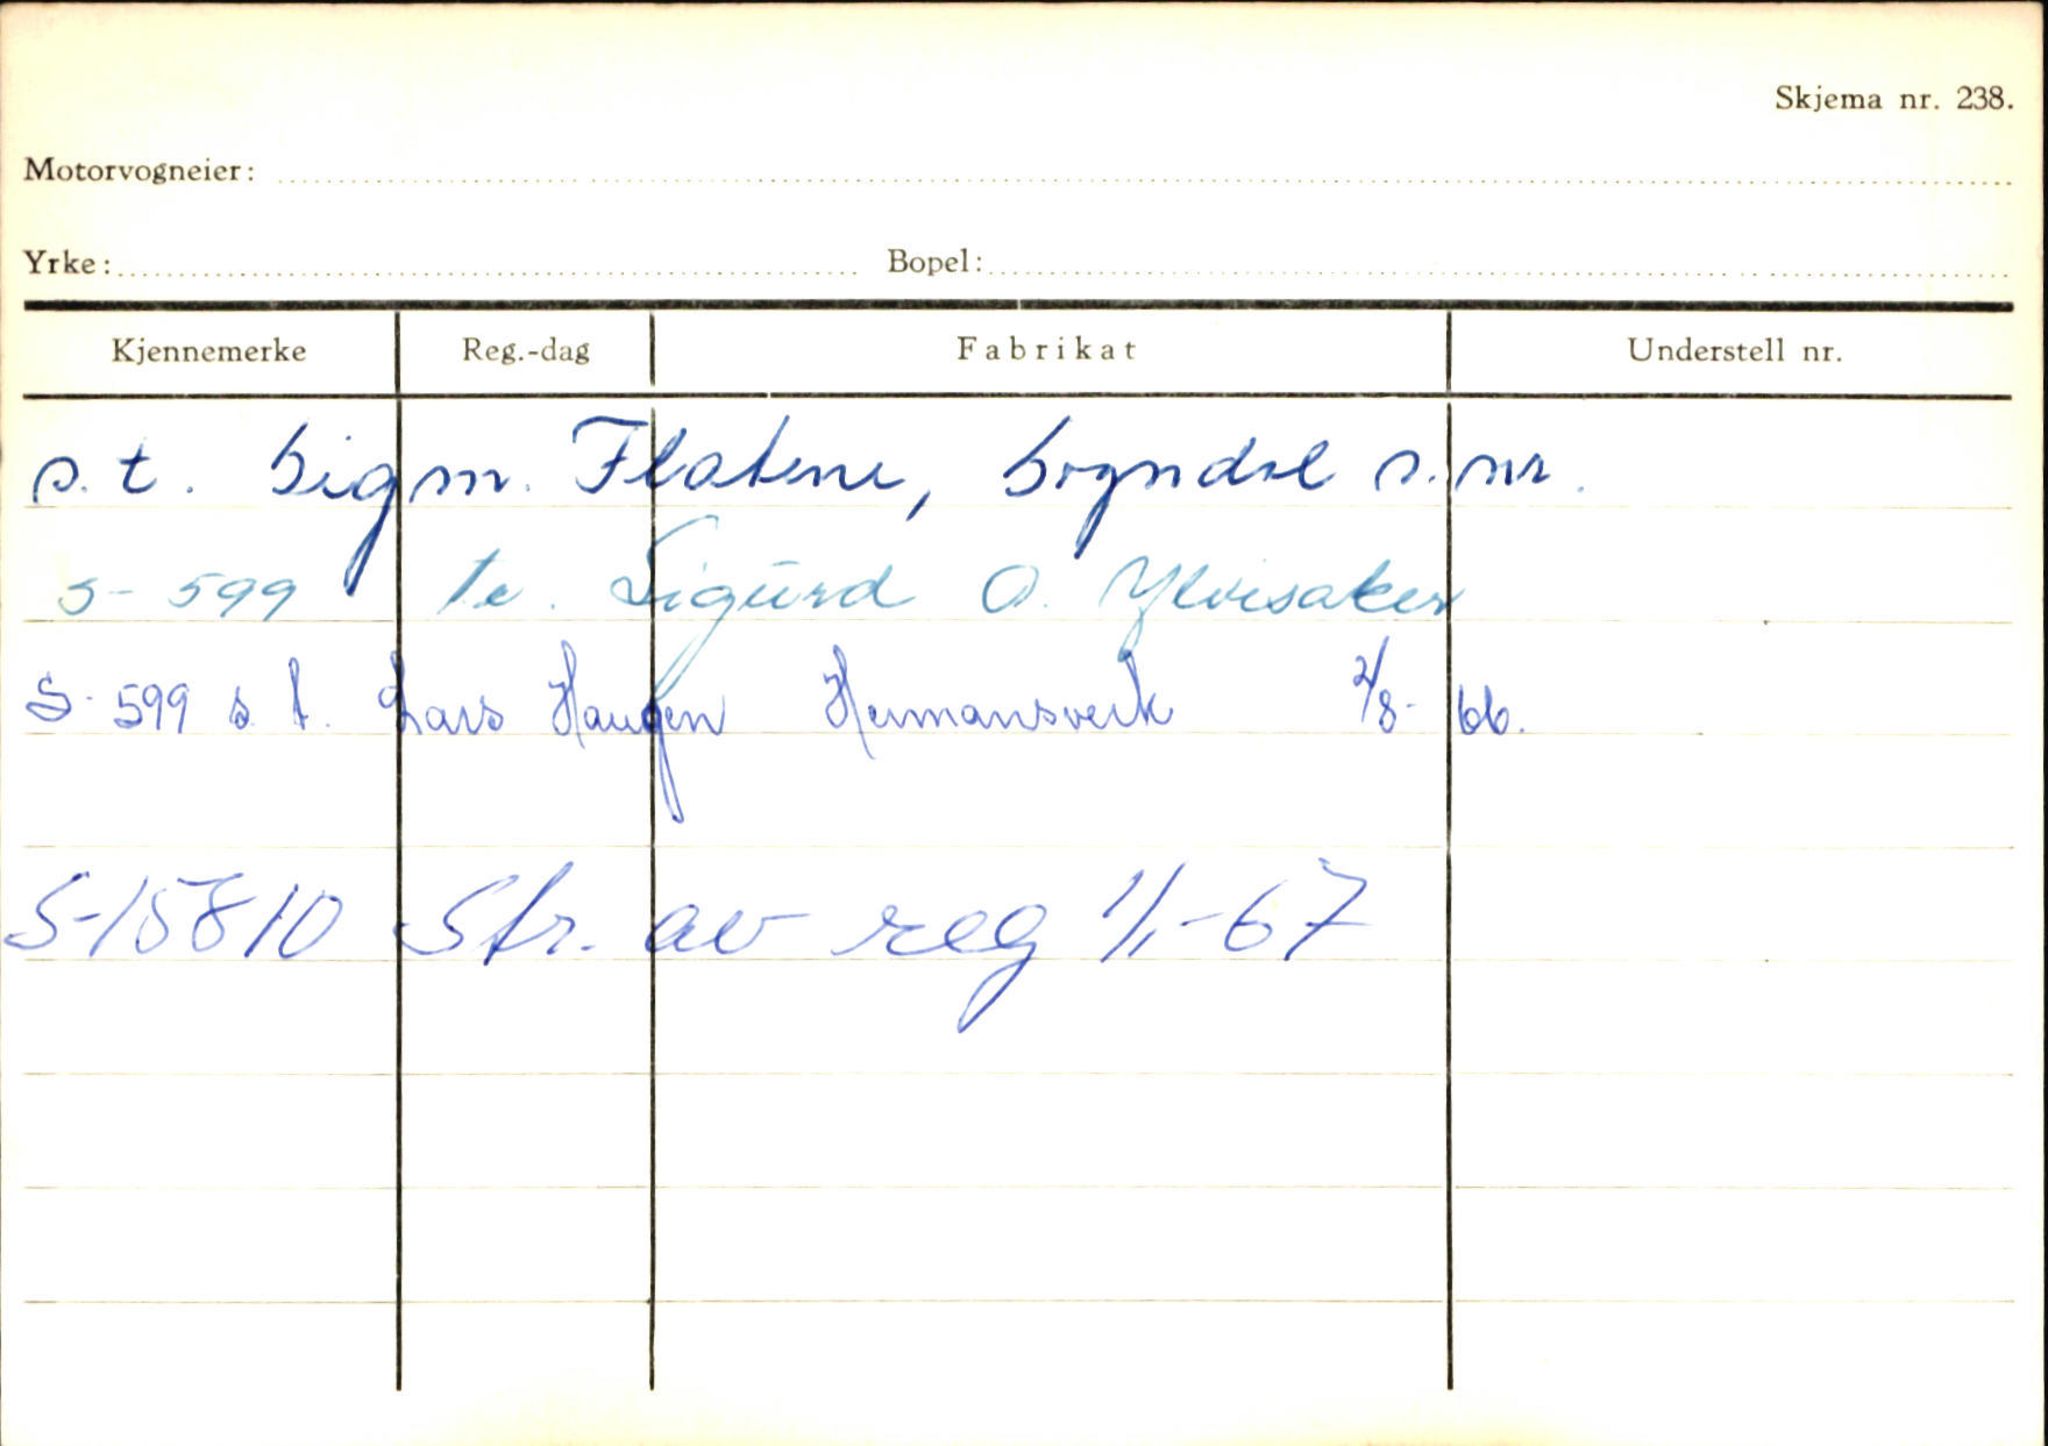 Skjema nr. 238.
Motorvogneier:
Yrke: Bopel:
Kjennemerke Reg.-dag Fabrikat Understell nr.
s.t. Sigm. Flatene, Sogndal s. nr.
S-599 te. Sigurd O. Ylvisaker
S-599 s.t. Lars Haugen Hermansverk 2/8-66.
S-15810 Str. av reg 1/1-67